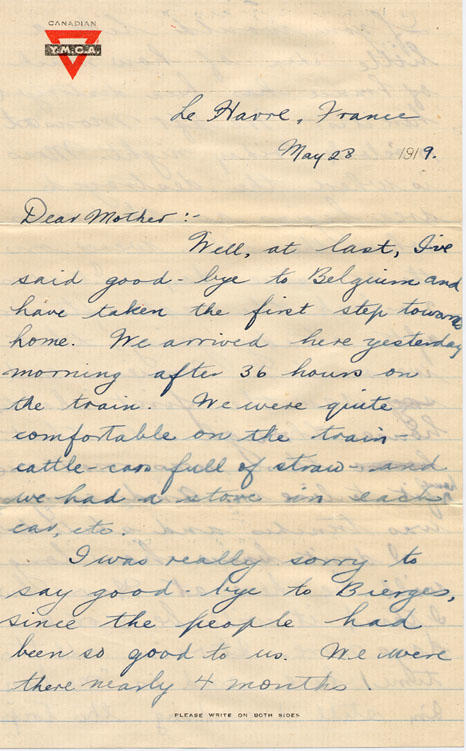 CANADIAN
Y.M.C.A.
Le Havre, France
May 28 1919.
Dear Mother:-
Well, at last, I've
said good-bye to Belgium and
have taken the first step toward
home. We arrived here yesterday
morning after 36 hours on
the train. We were quite
comfortable on the train -
cattle-cars full of straw - and
we had a stove in each
car, etc.
I was really sorry to
say good-bye to Bierges,
since the people had
been so good to us. We were
there nearly 4 months.
PLEASE WRITE ON BOTH SIDES